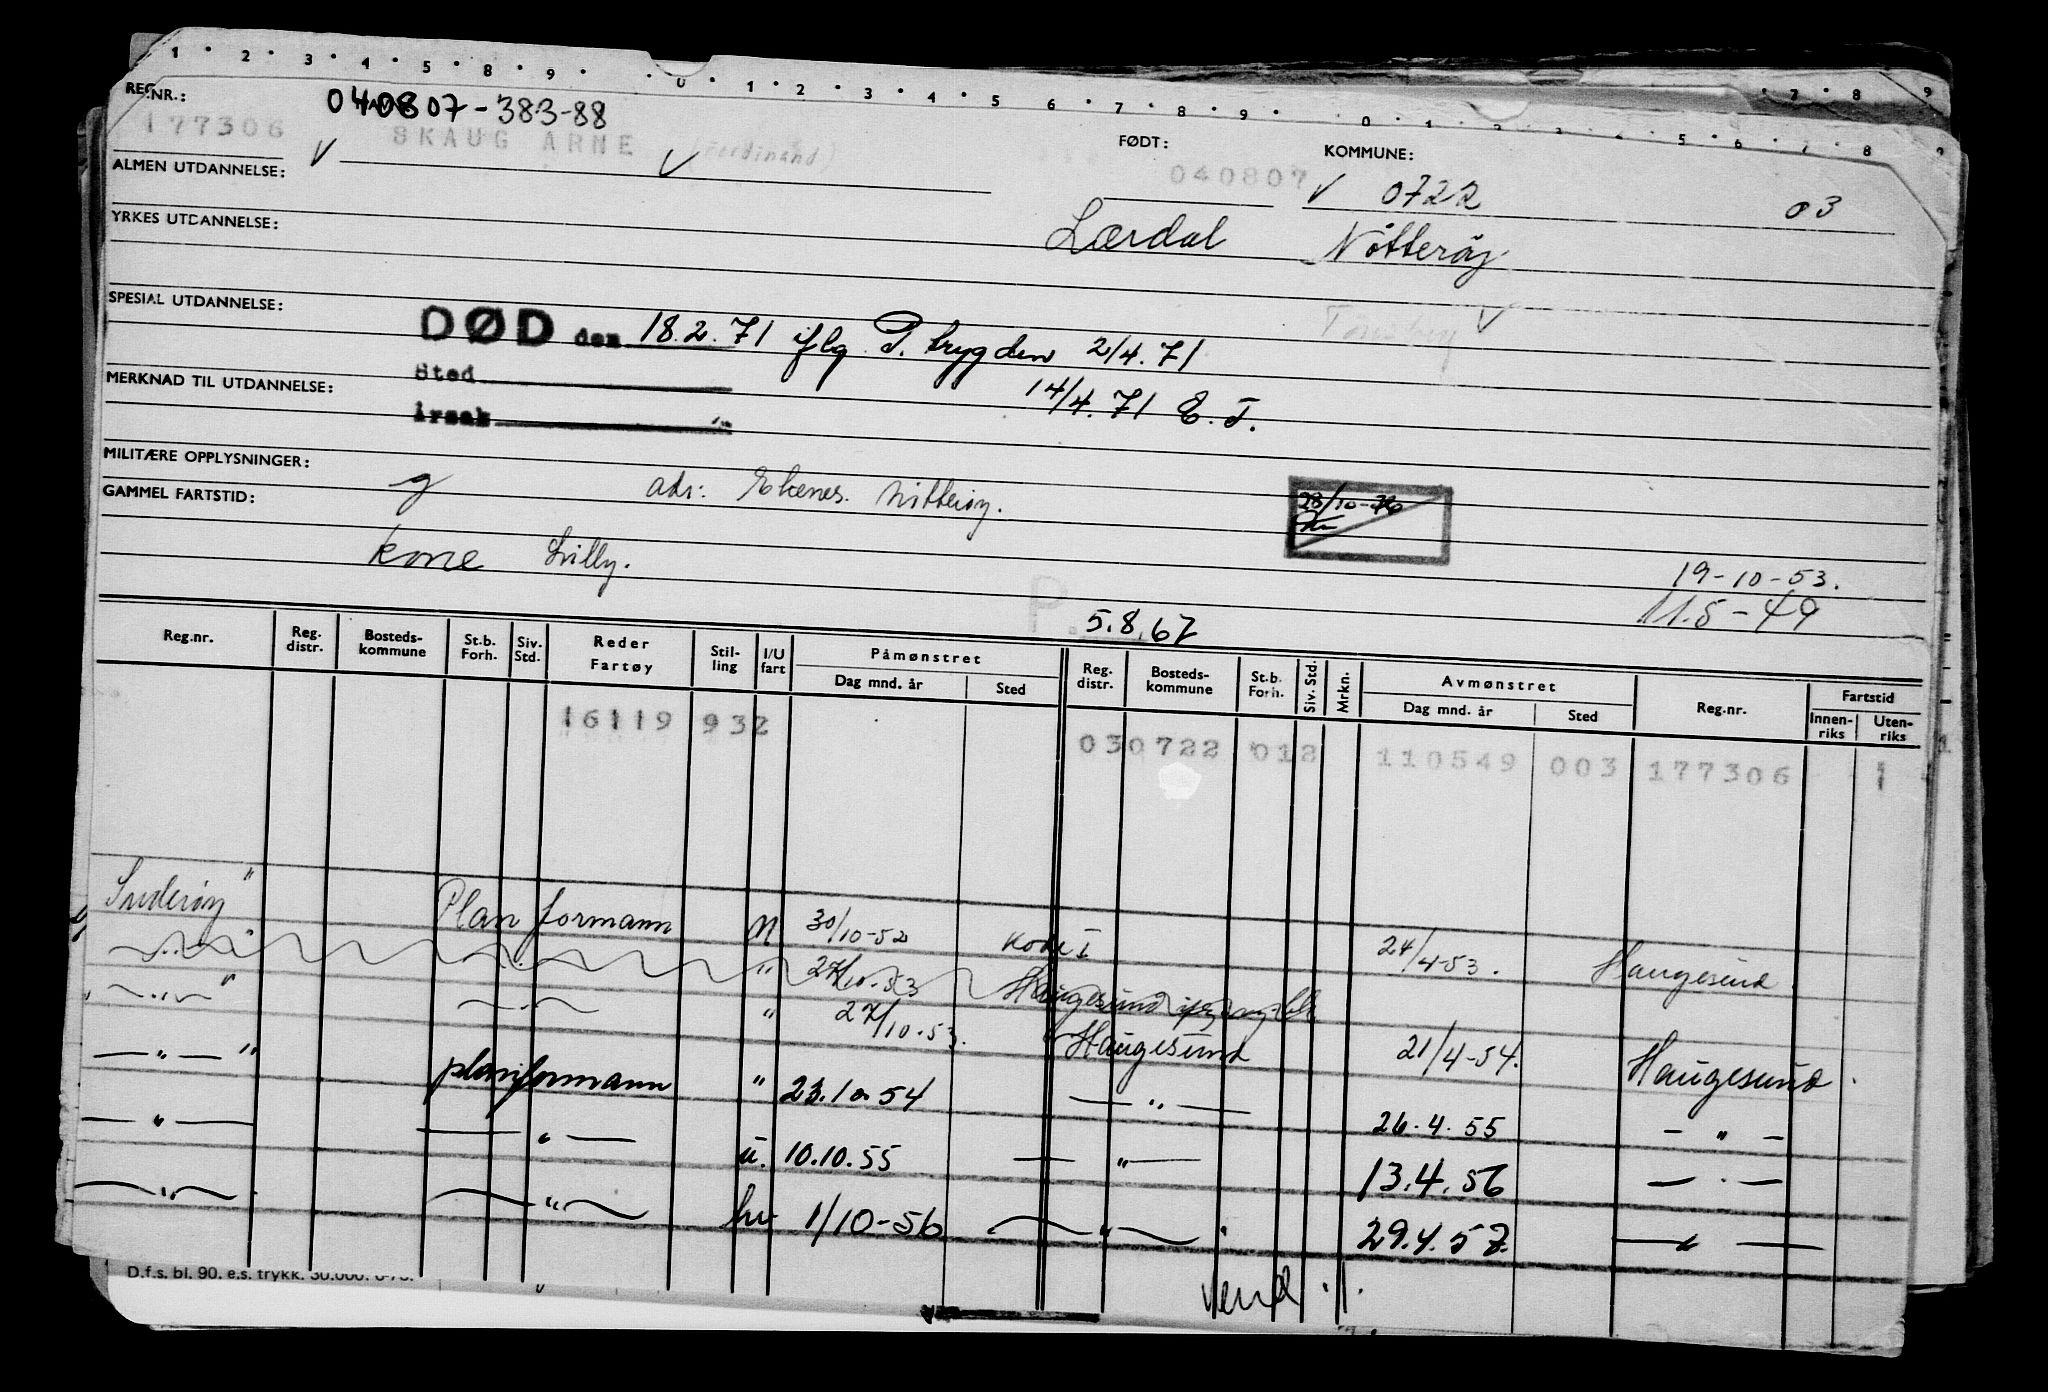 1 · 2 · 3 · 4 · 5 · 8 · 9 · · 0 · 1 · 2 · 3 · 4 · 5 6 · 7 · 8 · 9 · 0 · 1 5 · 6 · 7 · 8 9
7 · 8 · 9
REG.NR.: 040807-383-88
177306 SKAUG ARNE (Ferdinand) FØDT: 040807 KOMMUNE: 0722 03
ALMEN UTDANNELSE:
YRKES UTDANNELSE: Lærdal Nötteröy
SPESIAL UTDANNELSE: Tønsberg
DØD den 18.2.71 iflg. P. trygden 2/4.71
Sted
MERKNAD TIL UTDANNELSE: 14/4.71 E.T.
Årsak
MILITÆRE OPPLYSNINGER:
GAMMEL FARTSTID: g adr: Ekenes. Nøtterøy. 28/10-76
kone Lilly.
19-10-53.
P. 5.8.67 11.5-49
Reg.nr. Reg. distr. Bosteds-kommune St.b. Forh. Siv. Std. Reder Fartøy Stil-ling I/U fart Påmønstret Dag mnd. år Sted Reg. distr. Bosteds-kommune St.b. Forh. Siv. Std. Mrkn. Avmønstret Dag mnd. år Sted Reg.nr. Fartstid Innen-riks Uten-riks
16119 932 030722 012 110549 003 177306 1
Suderøy" Plan formann n 30/10-52 Kode I 24/4-53. Haugesund
— " — — " — " 27/10-53 Haugesund
— " — " — " — " 27/10-53. Haugesund 21/4-54. Haugesund.
— " — " planformann " 23.10.54 — " — 26.4.55 — " —
— " — — " — u. 10.10.55 — " — 13.4.56 — " —
— " — — " — hv 1/10-56 — " — 29.4.57. — " —
D.f.s. bl. 90. e.s. trykk. 30.000. 6-73.
Vend ./.